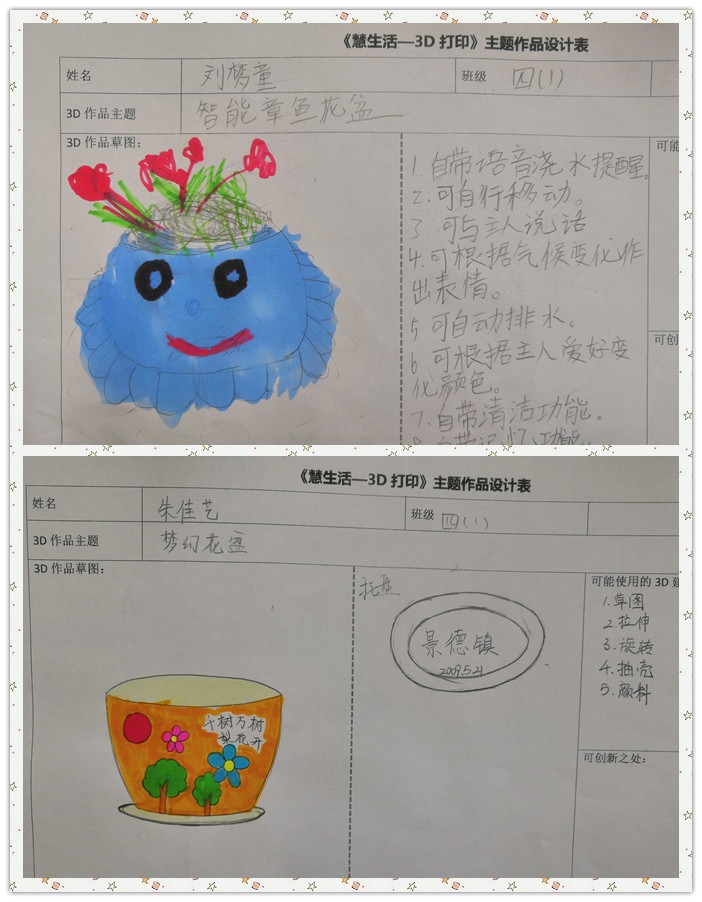 《慧生活—3D 打印》主题作品设计表
姓名 刘梦童 班级 四(1)
3D 作品主题 智能章鱼花盆
3D 作品草图： 可能
1.自带语音浇水提醒。
2.可自行移动。
3.可与主人说话
4.可根据气候变化作
出表情。
5.可自动排水。
6.可根据主人爱好变
化颜色。
7.自带清洁功能.
8.自带记忆功能.
可创
《慧生活—3D 打印》主题作品设计表
姓名 朱佳艺 班级 四(1)
3D 作品主题 梦幻花盆
3D 作品草图：
千树万树
梨花开
托盘
景德镇
2009.5.21
可能使用的 3D 建
1.草图
2.拉伸
3.旋转
4.抽壳
5.颜料
可创新之处：